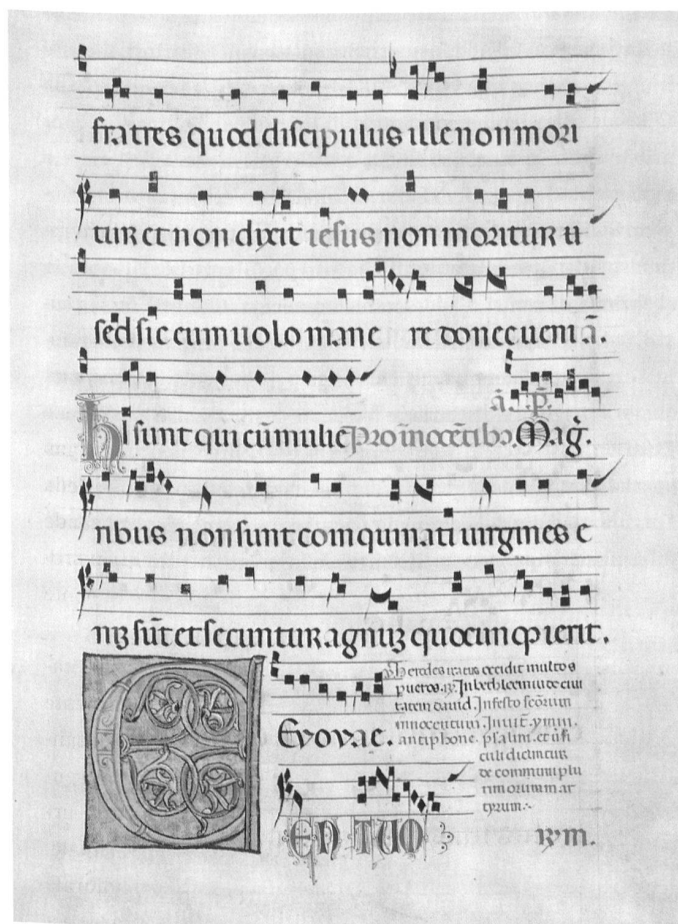 fratres quod discipulus ille non mori
tur et non dixit iesus non moritur
sed sic eum uolo mane re donec ueni ā
ā. p̄.
hI sunt qui cū mulie Pro īnocētib; Mag̃.
ribus non sunt com quinati uirgines e
nī sūt et secuntur agnū quocūqꝫ ierit.
herodes iratus occidit multos
pueros. In bethleem iude ciui
tatem dauid. In festo scōrum
innocentium.
Evovae. antiphone. psalmi. et
culi dicuntur
de communi plu
rimorum mar
tyrum.
E EN TUO rum.